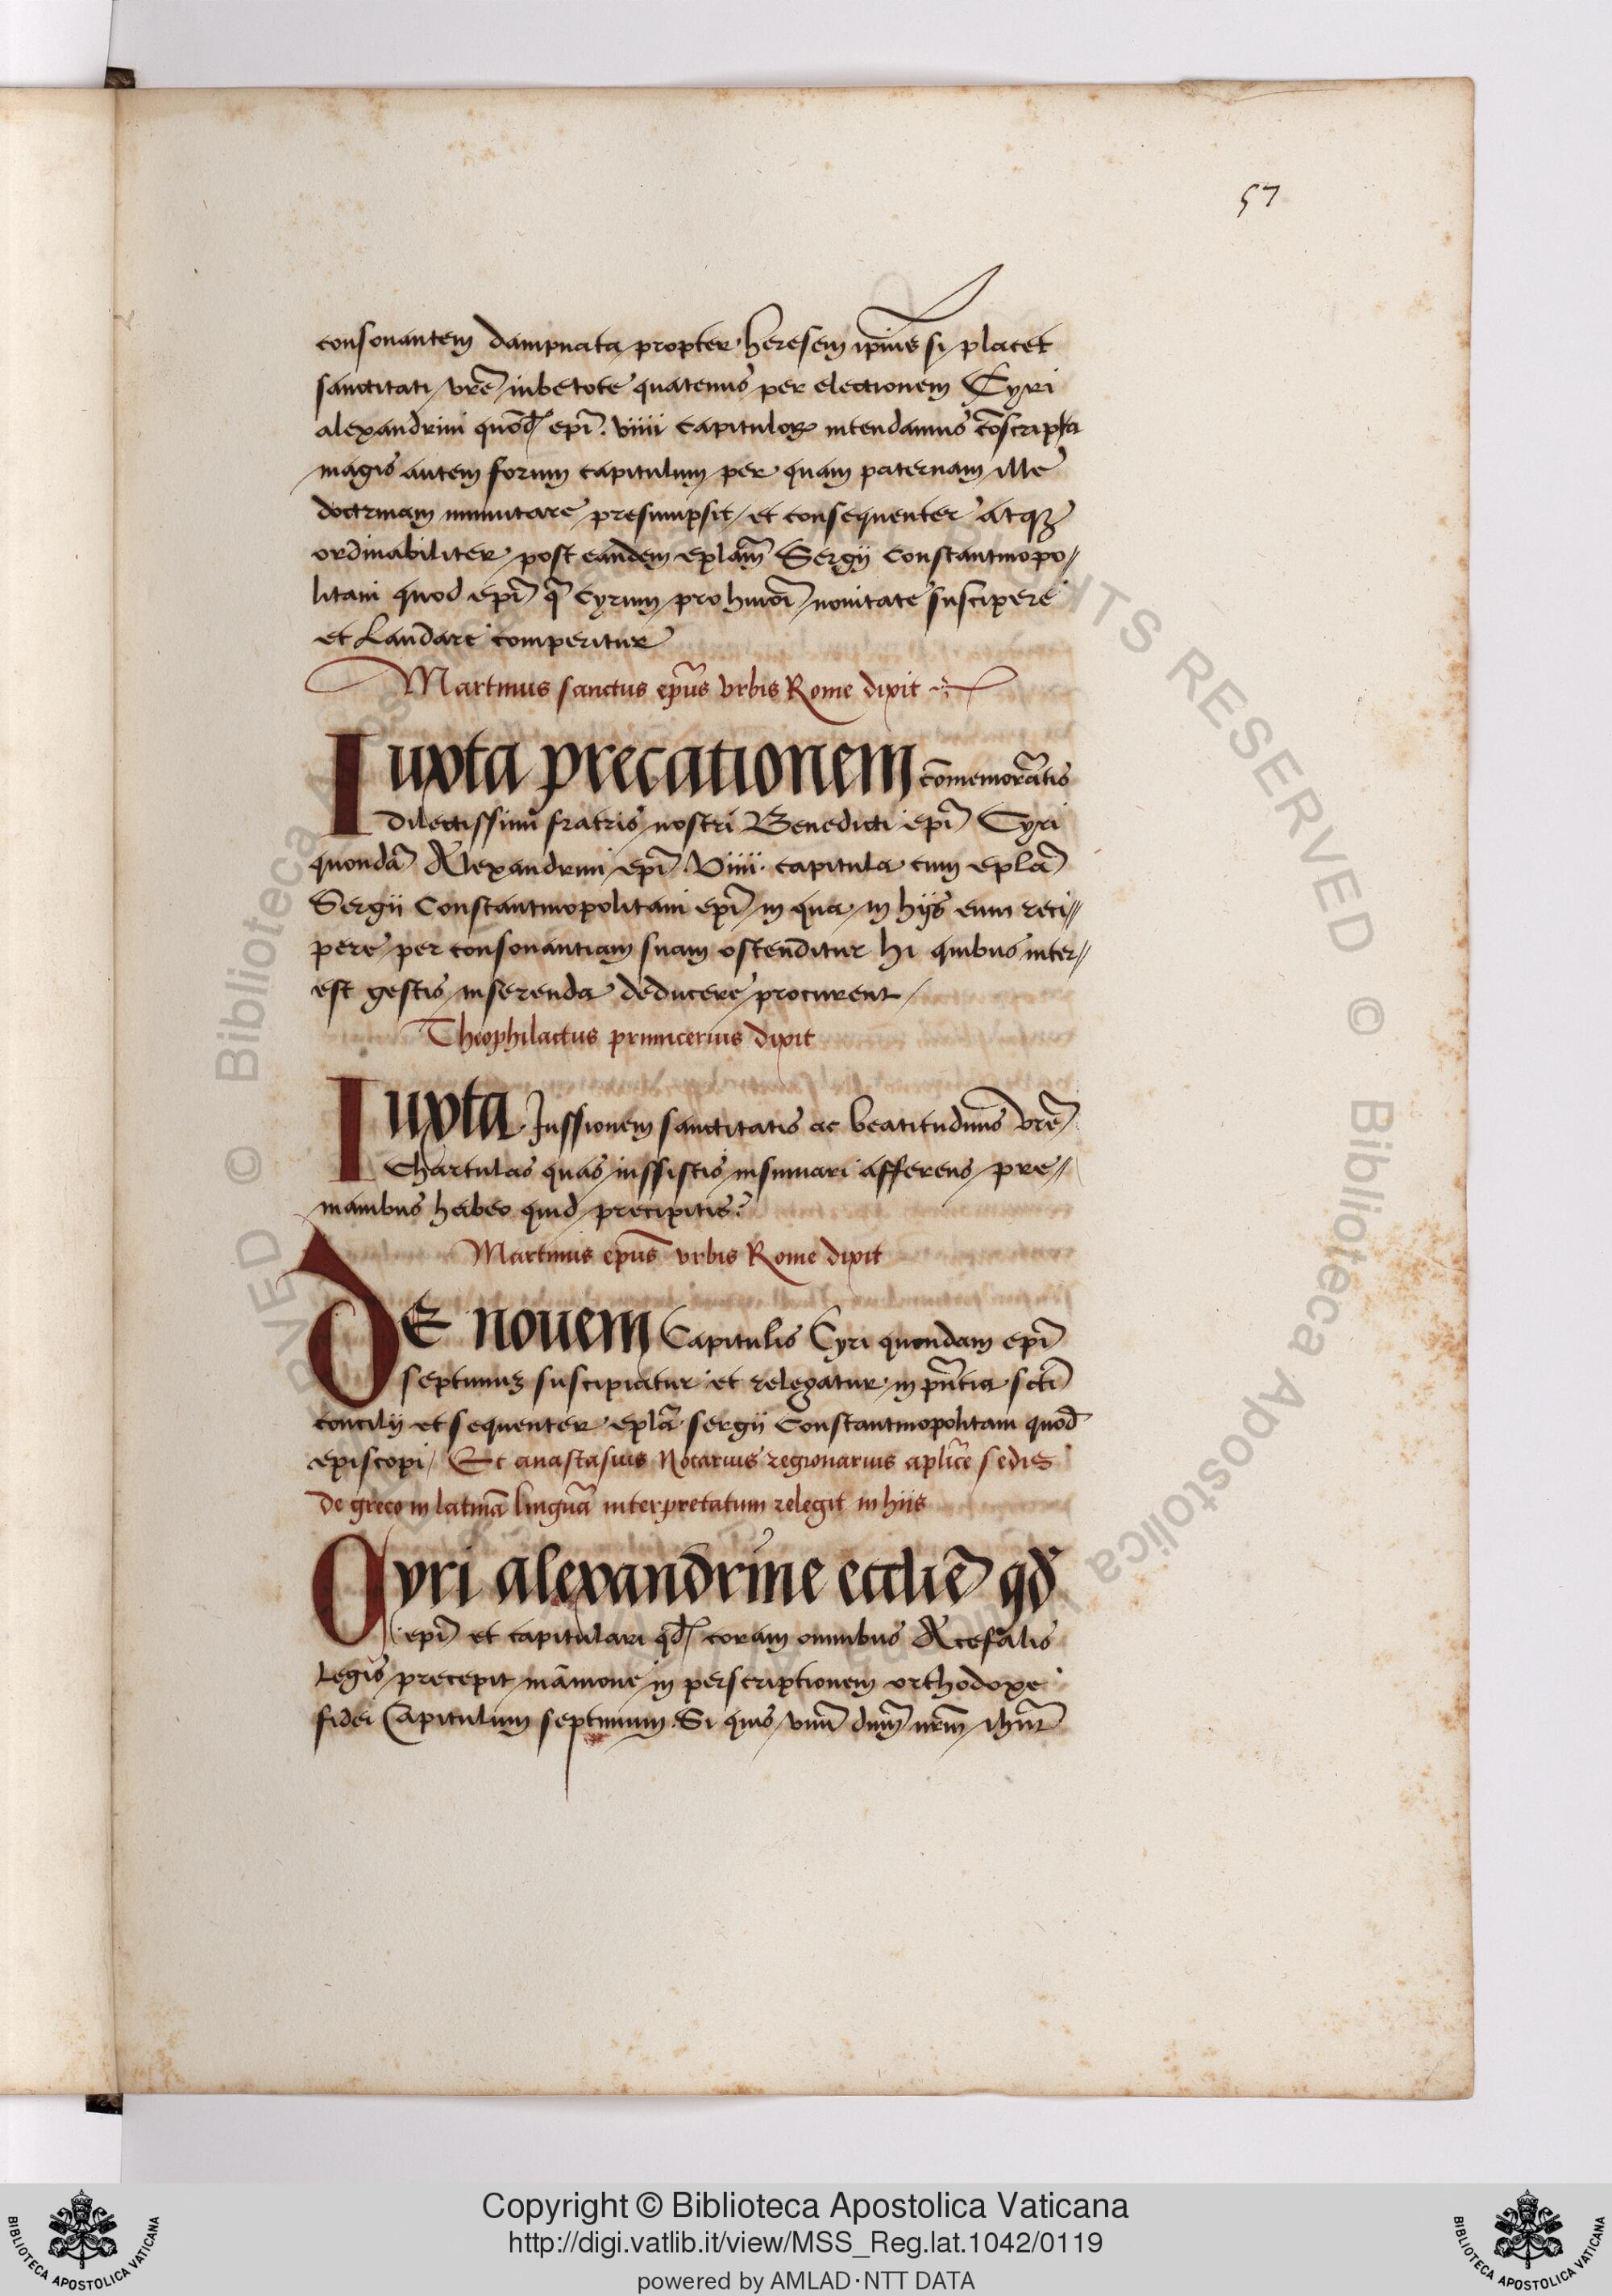 57
consonantem dampnata propter heresem ip̄ius si placet
sanctitati vr̄e iubetote quatenus per electionem Cyri
alexandrini quōd ep̄i. viiii capitulorꝝ intendamus cōscripta
magis autem forum capitulum per quam paternam ille
doctrinam inmutare presumpsit et consequenter atqꝫ
ordinabiliter post eandem ep̄lam Sergij Constantinopo//
litani quod ep̄i q̄ Cyrum pro huiōi nouitate suscipere
et Laudare comperitur
Martinus sanctus ep̄us vrbis Rome dixit
Iuxta precationem cōmemorātis
dilectissimi fratris nostri Benedicti ep̄i Cyri
quondā Alexandrini ep̄i. Viiii. capitula cum ep̄lā
Sergii Constantinopolitani ep̄i in qua in hijs eum reci//
pere per consonantiam suam ostenditur hi quibus inter//
est gestis inserenda deducere procurent
Theophilactus primicerius dixit
Iuxta Iussionem sanctitatis ac beatitudinis vr̄e
Chartulas quas iussistis insinuari afferens pre//
manibus habeo quid precipitis?
Martinus ep̄us vrbis Rome dixit
DE nouem Capitulis Cyri quondam ep̄i
septimuꝫ suscipiatur et relegatur in pn̄tia sc̄ti
concilij et sequenter ep̄lā sergij Constantinopolitani quod̄
episcopi / Et anastasius Notarius regionarius apl̄ice sedis
de greco in latinā linguā interpretatum relegit in hiis
Cyri alexandrine eccl̄ie qd̄
ep̄i et capitulari qd̄ coram omnibus Acefalis
Legis precepit in perscriptionem orthodoxe
fidei Capitulum septimum. Si quis vnū dn̄m nr̄m
Copyright © Biblioteca Apostolica Vaticana
http://digi.vatlib.it/view/MSS_Reg.lat.1042/0119
powered by AMLAD·NTT DATA
BIBLIOTECA APOSTOLICA VATICANA
BIBLIOTECA APOSTOLICA VATICANA